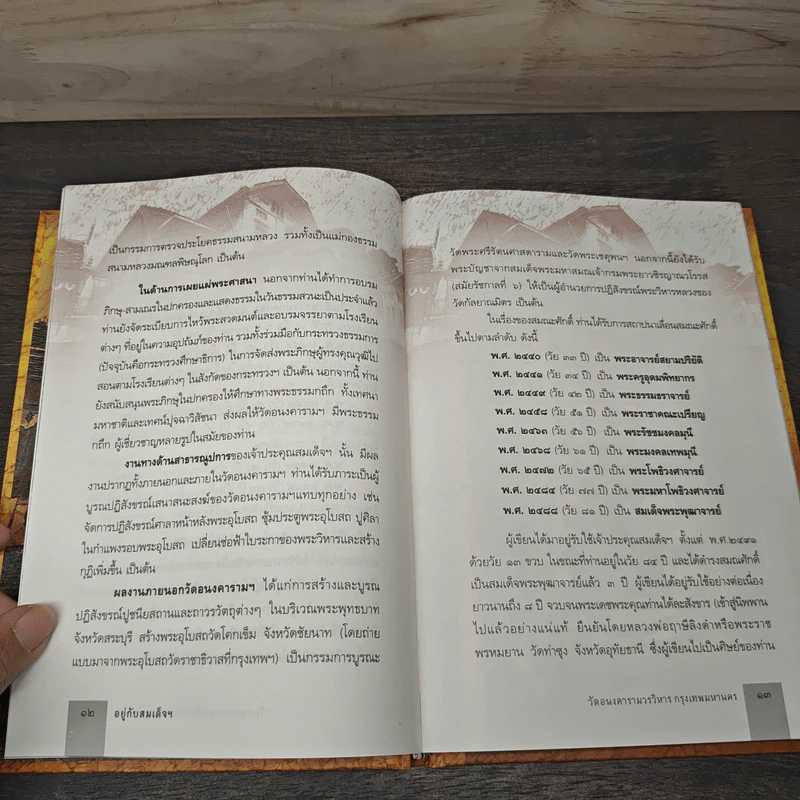 เป็นกรรมการตรวจประโยคธรรมสนามหลวง รวมทั้งเป็นแม่กองธรรม
สนามหลวงมณฑลพิษณุโลก เป็นต้น
ในด้านการเผยแผ่พระศาสนา นอกจากท่านได้ทำการอบรม
ภิกษุ-สามเณรในปกครองและแสดงธรรมในวันธรรมสวนะเป็นประจำแล้ว
ท่านยังจัดระเบียบการไหว้พระสวดมนต์และอบรมจรรยาตามโรงเรียน
ต่างๆ ที่อยู่ในความอุปถัมภ์ของท่าน รวมทั้งร่วมมือกับกระทรวงธรรมการ
(ปัจจุบันคือกระทรวงศึกษาธิการ) ในการจัดส่งพระภิกษุผู้ทรงคุณวุฒิไป
สอนตามโรงเรียนต่างๆ ในสังกัดของกระทรวงฯ เป็นต้น นอกจากนี้ ท่าน
ยังสนับสนุนพระภิกษุในปกครองให้ศึกษาทางพระธรรมกถึก ทั้งเทศนา
มหาชาติและเทศน์ปุจฉาวิสัชนา ส่งผลให้วัดอนงคารามฯ มีพระธรรม
กถึก ผู้เชี่ยวชาญหลายรูปในสมัยของท่าน
งานทางด้านสาธารณูปการของเจ้าประคุณสมเด็จฯ นั้น มีผล
งานปรากฏทั้งภายนอกและภายในวัดอนงคารามฯ ท่านได้รับภาระเป็นผู้
บูรณปฏิสังขรณ์เสนาสนะสงฆ์ของวัดอนงคารามฯแทบทุกอย่าง เช่น
จัดการปฏิสังขรณ์ศาลาหน้าหลังพระอุโบสถ ซุ้มประตูพระอุโบสถ ปูศิลา
ในกำแพงรอบพระอุโบสถ เปลี่ยนช่อฟ้าใบระกาของพระวิหารและสร้าง
กุฏิเพิ่มขึ้น เป็นต้น
ผลงานภายนอกวัดอนงคารามฯ ได้แก่การสร้างและบูรณ
ปฏิสังขรณ์ปูชนียสถานและถาวรวัตถุต่างๆ ในบริเวณพระพุทธบาท
จังหวัดสระบุรี สร้างพระอุโบสถวัดโคกเข็ม จังหวัดชัยนาท (โดยถ่าย
แบบมาจากพระอุโบสถวัดราชาธิวาสที่กรุงเทพฯ) เป็นกรรมการบูรณะ
๑๒ อยู่กับสมเด็จฯ
วัดพระศรีรัตนศาสดารามและวัดพระเชตุพนฯ นอกจากนี้ยังได้รับ
พระบัญชาจากสมเด็จพระมหาสมณเจ้ากรมพระยาวชิรญาณวโรรส
(สมัยรัชกาลที่ ๖) ให้เป็นผู้อำนวยการปฏิสังขรณ์พระวิหารหลวงของ
วัดกัลยาณมิตร เป็นต้น
ในเรื่องของสมณศักดิ์ ท่านได้รับการสถาปนาเลื่อนสมณะศักดิ์
ขึ้นไปตามลำดับ ดังนี้
พ.ศ. ๒๔๔๐ (วัย ๓๓ ปี) เป็น พระอาจารย์สยามปริยัติ
พ.ศ. ๒๔๔๑ (วัย ๓๔ ปี) เป็น พระครูอุดมพิทยากร
พ.ศ. ๒๔๔๙ (วัย ๔๒ ปี) เป็น พระธรรมธราจารย์
พ.ศ. ๒๔๕๘ (วัย ๕๑ ปี) เป็น พระราชาคณะเปรียญ
พ.ศ. ๒๔๖๓ (วัย ๕๖ ปี) เป็น พระรัชชมงคลมุนี
พ.ศ. ๒๔๖๘ (วัย ๖๑ ปี) เป็น พระมงคลเทพมุนี
พ.ศ. ๒๔๗๒ (วัย ๖๕ ปี) เป็น พระโพธิวงศาจารย์
พ.ศ. ๒๔๘๔ (วัย ๗๗ ปี) เป็น พระมหาโพธิวงศาจารย์
พ.ศ. ๒๔๘๘ (วัย ๘๑ ปี) เป็น สมเด็จพระพุฒาจารย์
ผู้เขียนได้มาอยู่รับใช้เจ้าประคุณสมเด็จฯ ตั้งแต่ พ.ศ.๒๔๙๑
ด้วยวัย ๑๓ ขวบ ในขณะที่ท่านอยู่ในวัย ๘๔ ปี และได้ดำรงสมณศักดิ์
เป็นสมเด็จพระพุฒาจารย์แล้ว ๓ ปี ผู้เขียนได้อยู่รับใช้อย่างต่อเนื่อง
ยาวนานถึง ๘ ปี จวบจนพระเดชพระคุณท่านได้ละสังขาร (เข้าสู่นิพพาน
ไปแล้วอย่างแน่แท้ ยืนยันโดยหลวงพ่อฤาษีลิงดำหรือพระราช
พรหมยาน วัดท่าซุง จังหวัดอุทัยธานี ซึ่งผู้เขียนไปเป็นศิษย์ของท่าน
วัดอนงคารามวรวิหาร กรุงเทพมหานคร ๑๓